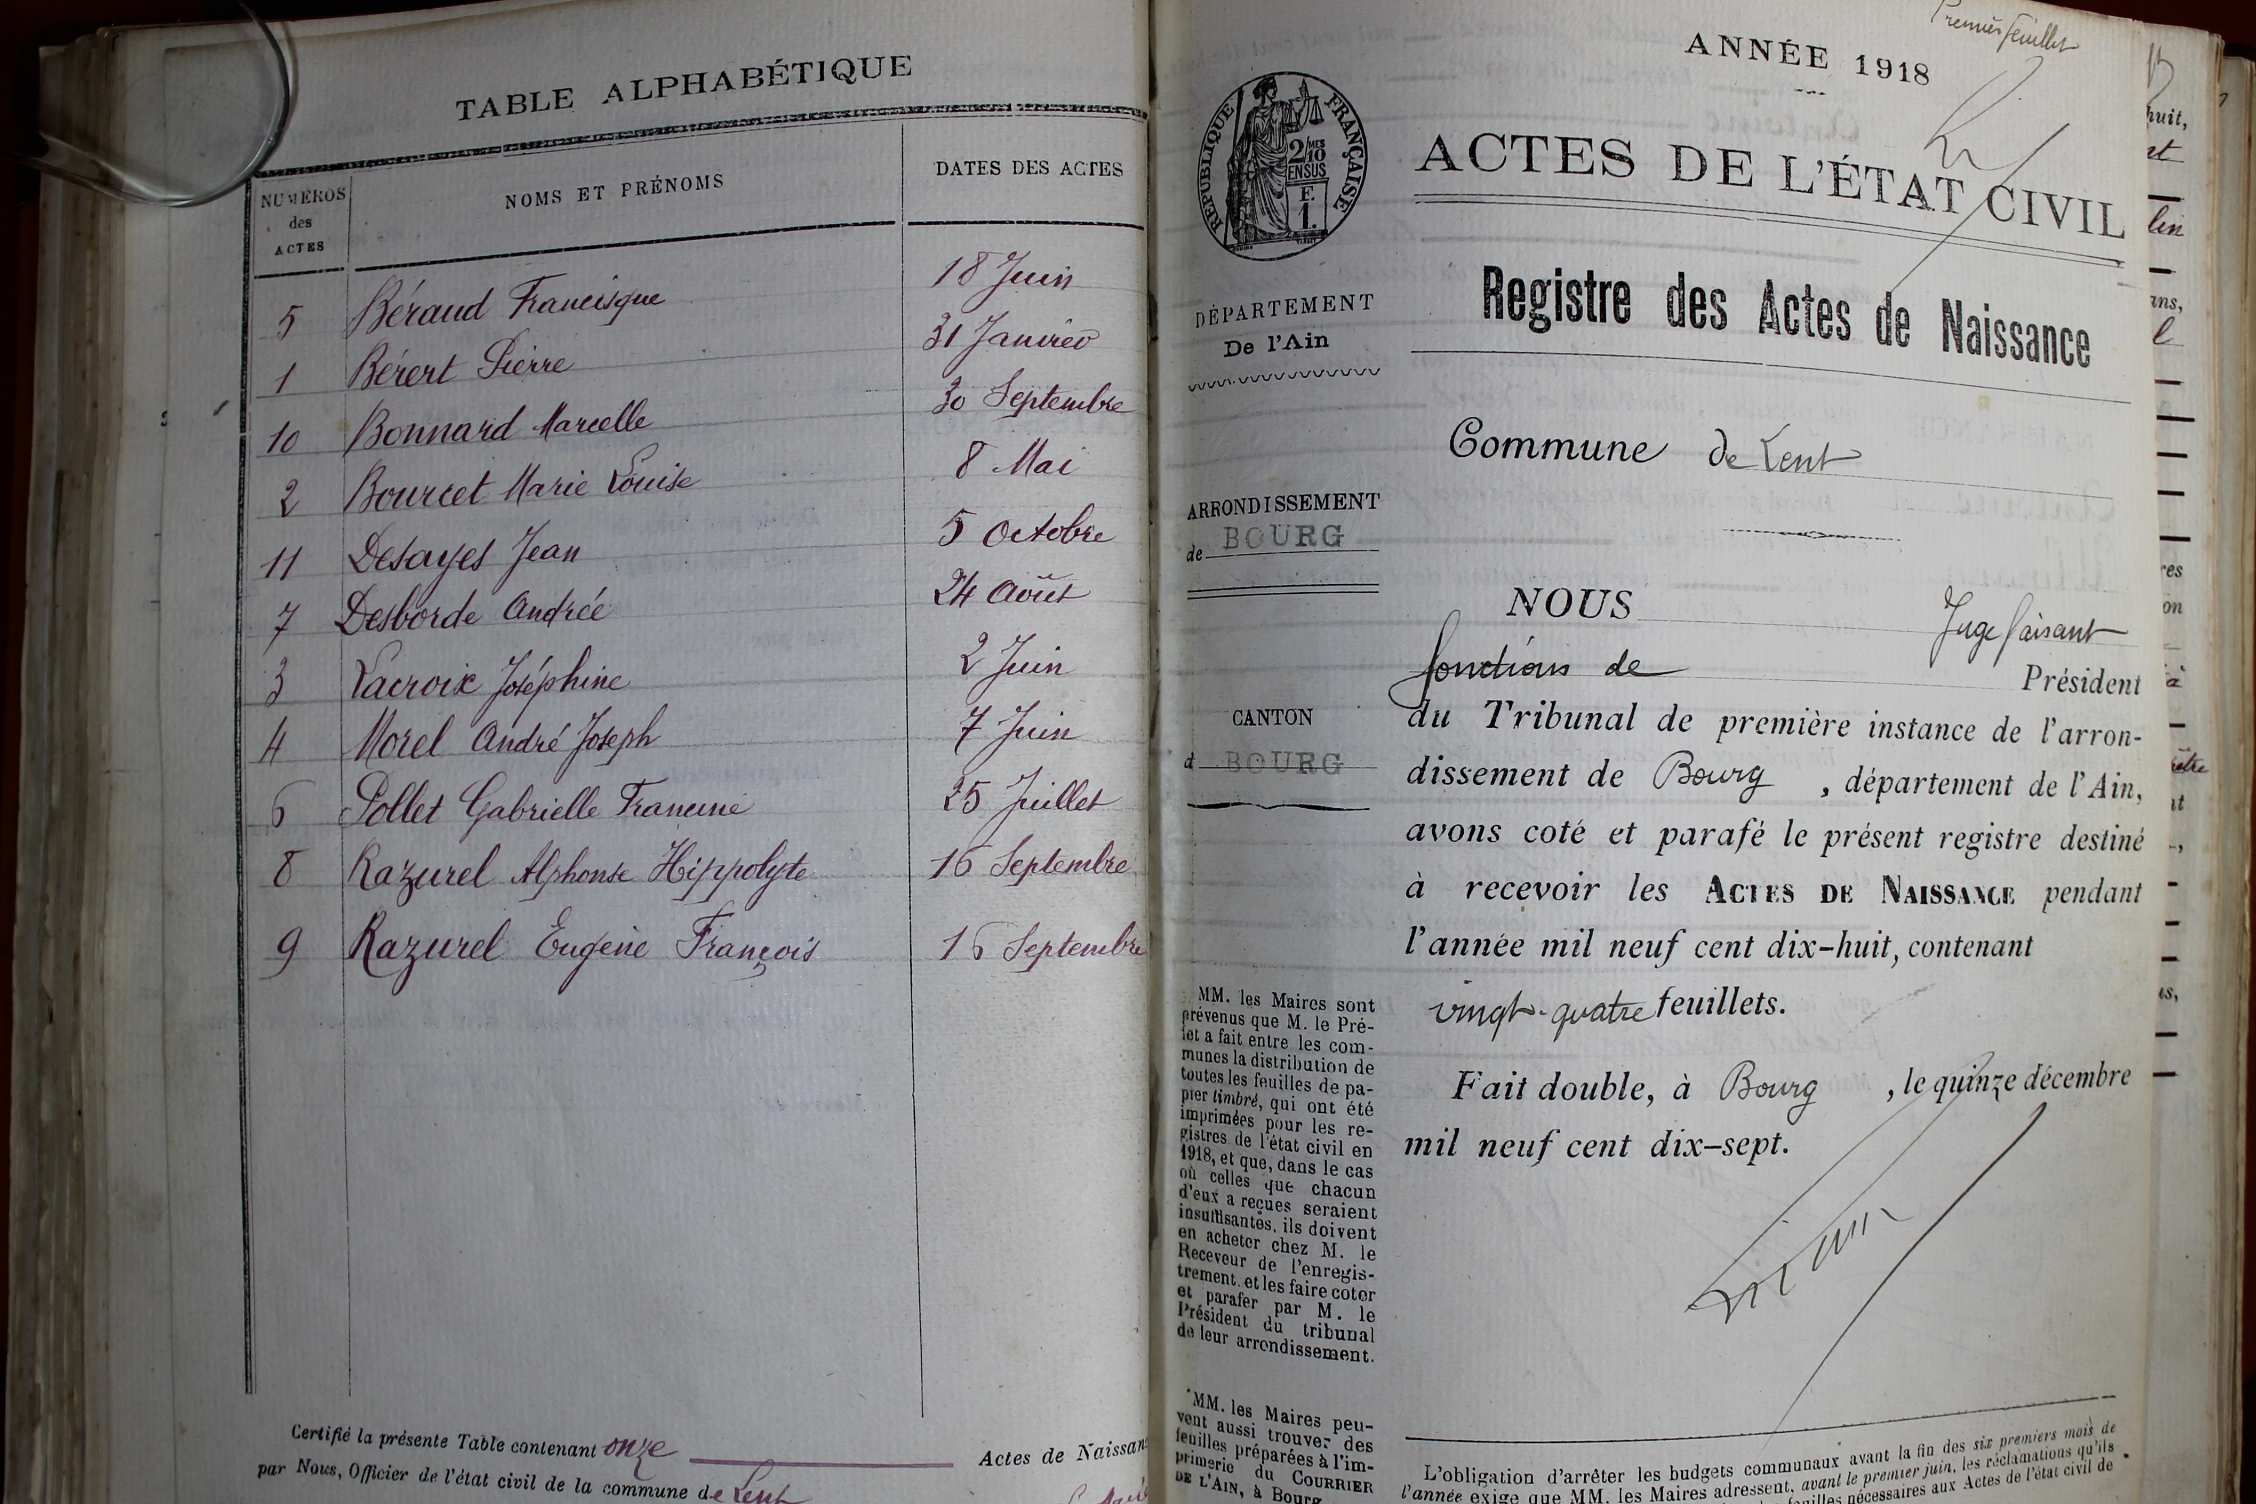 TABLE ALPHABÉTIQUE
NUMÉROS des ACTES NOMS ET PRÉNOMS DATES DES ACTES
5 Béraud Francisque 18 Juin
1 Bérert Pierre 31 Janvier
10 Bonnard Marcelle 30 Septembre
2 Bourcet Marie Louise 8 Mai
11 Desayes Jean 5 Octobre
7 Desborde Andrée 24 Août
3 Lacroix Joséphine 2 Juin
4 Morel André Joseph 7 Juin
6 Pollet Gabrielle Francine 25 Juillet
8 Razurel Alphonse Hippolyte 16 Septembre
9 Razurel Eugène François 16 Septembre
Certifié la présente Table contenant onze Actes de Naissan
par Nous, Officier de l'état civil de la commune de Lent
Premier feuillet
ANNÉE 1918
RÉPUBLIQUE FRANÇAISE
2/MES
10
EN SUS
E.
1.
ACTES DE L'ÉTAT CIVIL
Registre des Actes de Naissance
DÉPARTEMENT
De l'Ain
Commune de Lent
ARRONDISSEMENT
de BOURG
CANTON
d BOURG
NOUS Juge faisant
fonctions de Président
du Tribunal de première instance de l'arron-
dissement de Bourg, département de l'Ain,
avons coté et parafé le présent registre destiné
à recevoir les ACTES DE NAISSANCE pendant
l'année mil neuf cent dix-huit, contenant
vingt-quatre feuillets.
Fait double, à Bourg, le quinze décembre
mil neuf cent dix-sept.
MM. les Maires sont
prévenus que M. le Pré-
fet a fait entre les com-
munes la distribution de
toutes les feuilles de pa-
pier timbré, qui ont été
imprimées pour les re-
gistres de l'état civil en
1918, et que, dans le cas
où celles que chacun
d'eux a reçues seraient
insuffisantes, ils doivent
en acheter chez M. le
Receveur de l'enregis-
trement et les faire coter
et parafer par M. le
Président du tribunal
de leur arrondissement.
MM. les Maires peu-
vent aussi trouver des
feuilles préparées à l'im-
primerie du COURRIER
DE L'AIN, à Bourg
L'obligation d'arrêter les budgets communaux avant la fin des six premiers mois de
l'année exige que MM. les Maires adressent, avant le premier juin, les réclamations qu'ils
feuilles nécessaires aux Actes de l'état civil de
huit,
lin
ans,